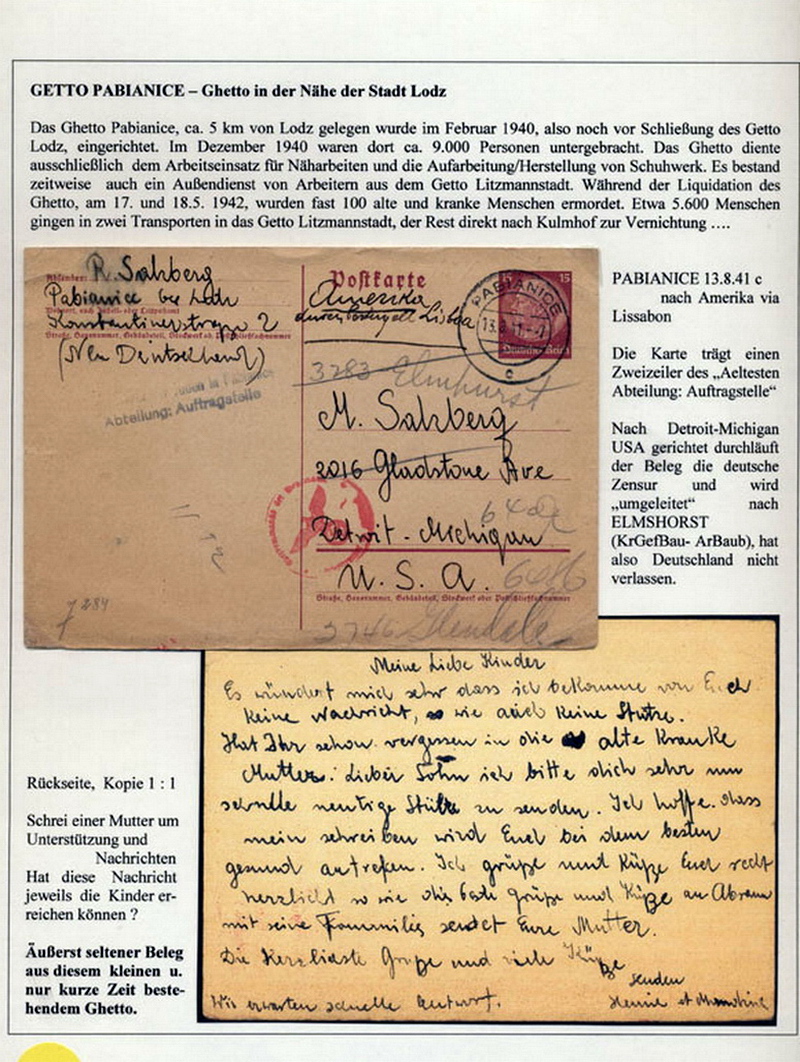 GETTO PABIANICE – Ghetto in der Nähe der Stadt Lodz
Das Ghetto Pabianice, ca. 5 km von Lodz gelegen wurde im Februar 1940, also noch vor Schließung des Getto
Lodz, eingerichtet. Im Dezember 1940 waren dort ca. 9.000 Personen untergebracht. Das Ghetto diente
ausschließlich dem Arbeitseinsatz für Näharbeiten und die Aufarbeitung/Herstellung von Schuhwerk. Es bestand
zeitweise auch ein Außendienst von Arbeitern aus dem Getto Litzmannstadt. Während der Liquidation des
Ghetto, am 17. und 18.5. 1942, wurden fast 100 alte und kranke Menschen ermordet. Etwa 5.600 Menschen
gingen in zwei Transporten in das Getto Litzmannstadt, der Rest direkt nach Kulmhof zur Vernichtung ….
Absender: R. Salzberg
Pabianice bei Lodz
Wohnort, auch Zustell- oder Leitpostamt
2
Straße, Hausnummer, Gebäudeteil, Stockwerk oder Postschließfachnummer
(Neu Deutschland)
in Pabianice
Abteilung: Auftragstelle
7284
Postkarte
Amerika
Lisboa
15 15
Deutsches Reich
PABIANICE
13.8.41
c
3783 Elmhurst
M. Salzberg
2016 Gladstone Ave
Detroit - Michigan
U. S. A.
Straße, Hausnummer, Gebäudeteil, Stockwerk oder Postschließfachnummer
3746 Glendale
PABIANICE 13.8.41 c
nach Amerika via
Lissabon
Die Karte trägt einen
Zweizeiler des „Aeltesten
Abteilung: Auftragstelle“
Nach Detroit-Michigan
USA gerichtet durchläuft
der Beleg die deutsche
Zensur und wird
„umgeleitet“ nach
ELMSHORST
(KrGefBau- ArBaub), hat
also Deutschland nicht
verlassen.
Meine Liebe Kinder
Es wündert mich sehr dass ich bekomme von Euch
keine Nachricht, so wie auch keine Stütze.
Hat Ihr schon vergessen in die alte Kranke
Mutter. Lieber Sohn ich bitte dich sehr um
schnelle Stütze zu senden. Ich hoffe dass
mein schreiben wird Euch bei dem besten
gesund antrefen. Ich grüße und Küße Euch recht
herzlich so wie die beste grüße und Küße an Abram
mit seine sendet Eure Mutter.
Die Herzlichste Grüße und viele Küße
senden
Wir erwarten schnelle Antwort.
Rückseite, Kopie 1 : 1
Schrei einer Mutter um
Unterstützung und
Nachrichten
Hat diese Nachricht
jeweils die Kinder er-
reichen können ?
Äußerst seltener Beleg
aus diesem kleinen u.
nur kurze Zeit beste-
hendem Ghetto.